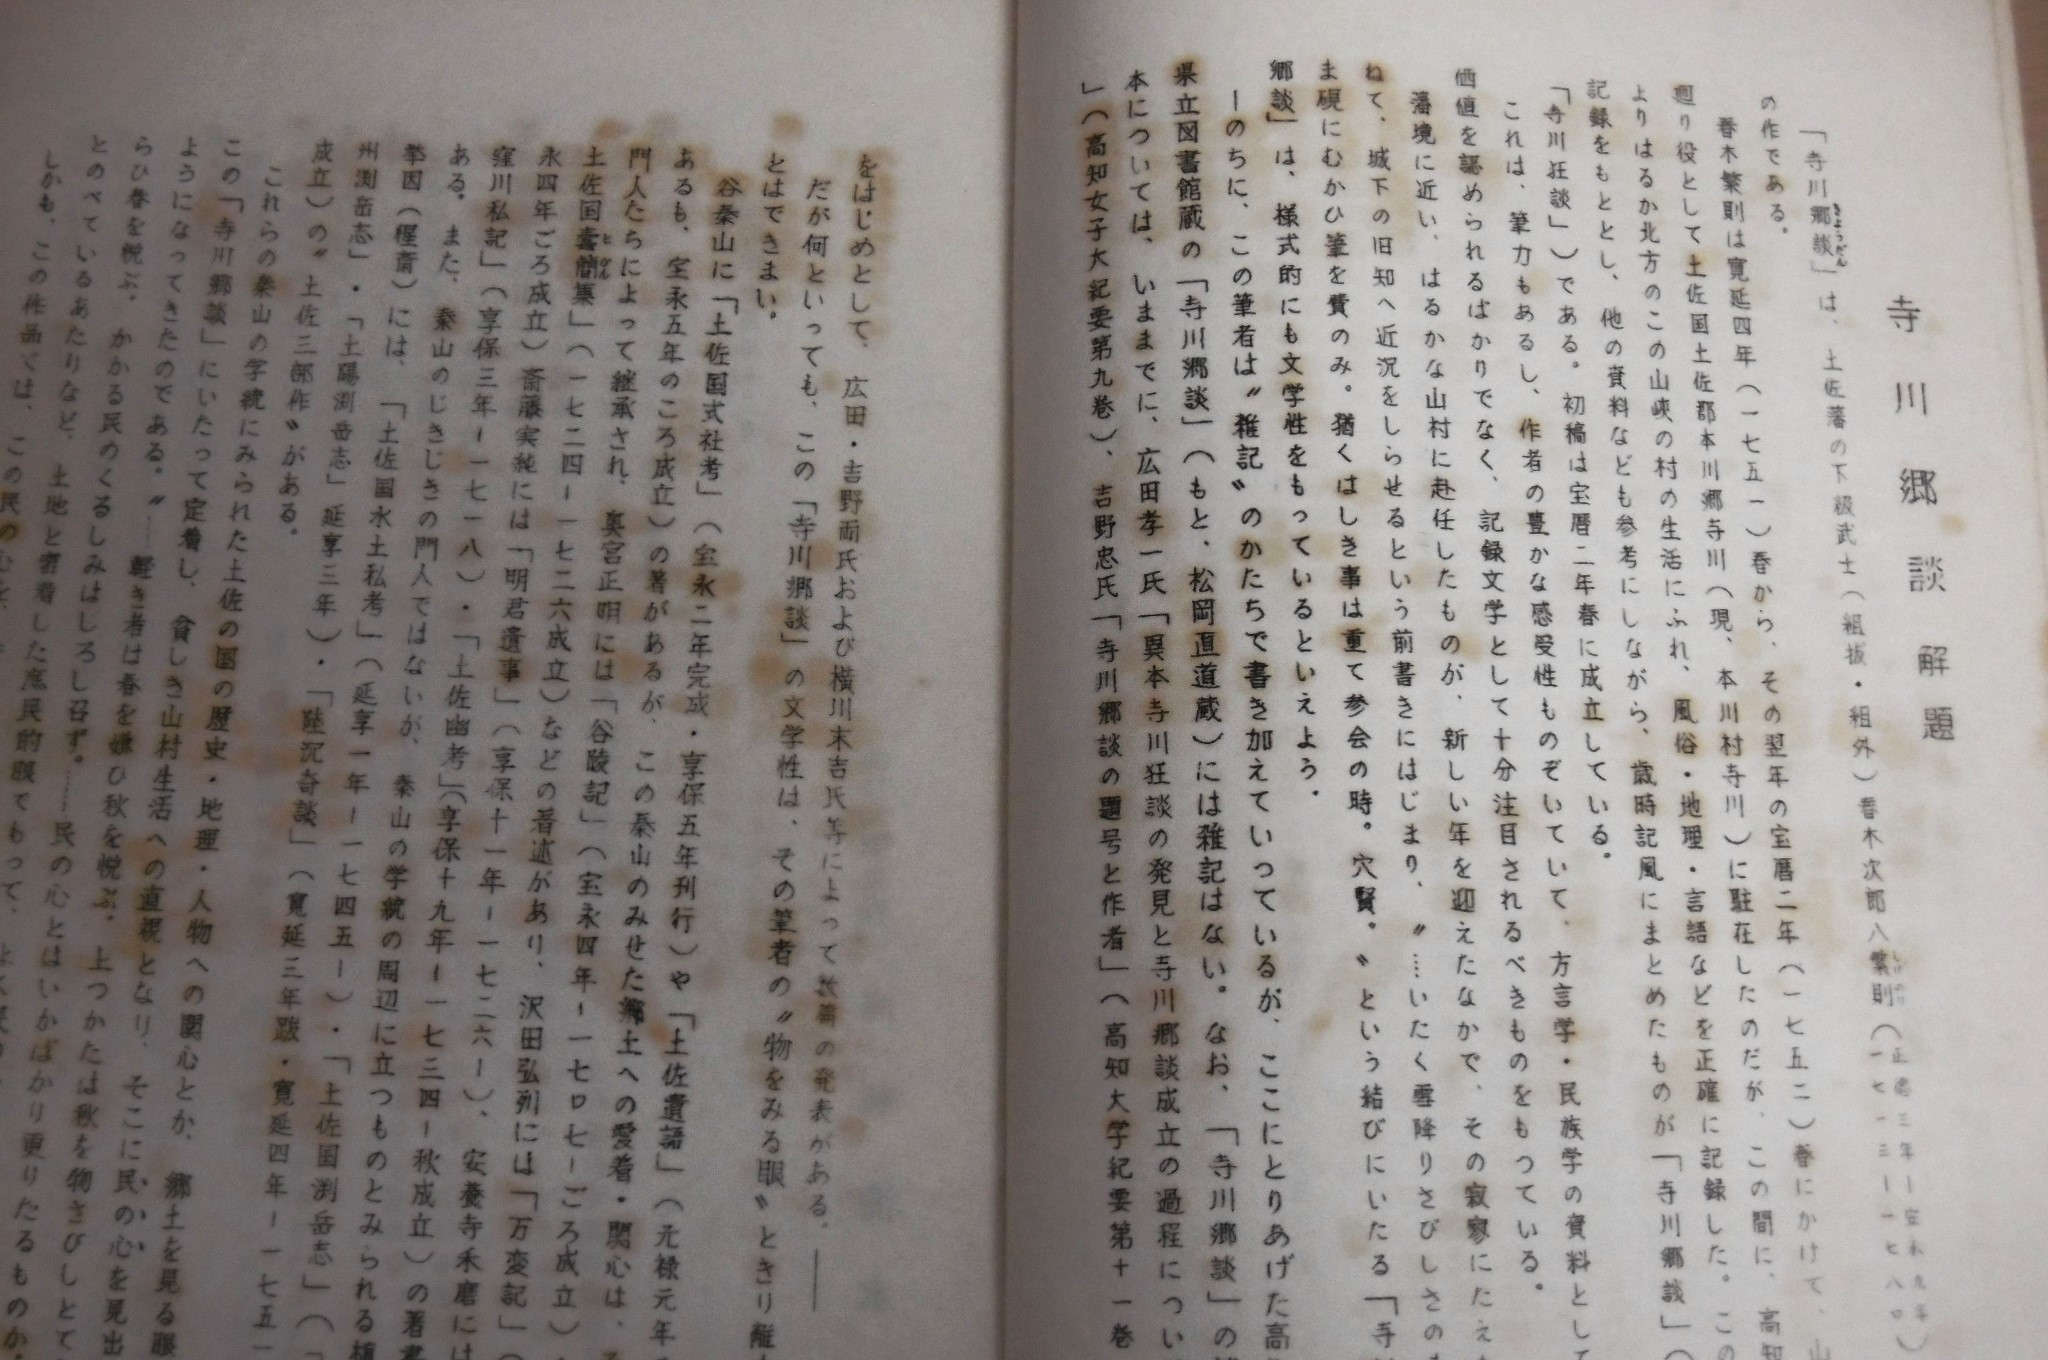 寺川郷談解題
「寺川郷談」は、土佐藩の下級武士(組抜・組外)春木次郎八繁則(正徳三年ー安永九年)
きょうだん
しげのり
一七一三ー一七八〇
の作である。
春木繁則は寛延四年(一七五一)春から、その翌年の宝暦二年(一七五二)春にかけて、山
廻り役として土佐国土佐郡本川郷寺川(現、本川村寺川)に駐在したのだが、この間に、高知
よりはるか北方のこの山峡の村の生活にふれ、風俗・地理・言語などを正確に記録した。この
記録をもととし、他の資料なども参考にしながら、歳時記風にまとめたものが「寺川郷談」(
「寺川狂談」)である。初稿は宝暦二年春に成立している。
これは、筆力もあるし、作者の豊かな感受性ものぞいていて、方言学・民族学の資料として
価値を認められるばかりでなく、記録文学として十分注目されるべきものをもつている。
藩境に近い、はるかな山村に赴任したものが、新しい年を迎えたなかで、その寂寥にたえ
ねて、城下の旧知へ近況をしらせるという前書きにはじまり、〝…いたく雪降りさびしさの
ま硯にむかひ筆を費のみ。猶くはしき事は重て参会の時。穴賢。〟という結びにいたる「寺
郷談」は、様式的にも文学性をもっているといえよう。
ーのちに、この筆者は〝雑記〟のかたちで書き加えていっているが、ここにとりあげた高
県立図書館蔵の「寺川郷談」(もと、松岡直道蔵)には雑記はない。なお、「寺川郷談」の
本については、いままでに、広田孝一氏「異本寺川狂談の発見と寺川郷談成立の過程につい
」(高知女子大紀要第九巻)、吉野忠氏「寺川郷談の題号と作者」(高知大学紀要第十一巻
をはじめとして、広田・吉野両氏および横川末吉氏等によって数篇の発表がある。——
だが何といっても、この「寺川郷談」の文学性は、その筆者の〝物をみる眼〟ときり離
とはできまい。
谷秦山に「土佐国式社考」(宝永二年完成・享保五年刊行)や「土佐遺語」(元禄元年
あるも、宝永五年のころ成立)の著があるが、この秦山のみせた郷土への愛着・関心は、
門人たちによって継承され、奥宮正明には「谷陵記」(宝永四年ー一七〇七ーごろ成立)
土佐国蠧簡集」(一七二四ー一七二六成立)などの著述があり、沢田弘列には「万変記」(
とかん
永四年ごろ成立)斎藤実純には「明君遺事」(享保十一年ー一七二六ー)、安養寺禾麿には
窪川私記」(享保三年ー一七一八)・「土佐幽考」(享保十九年ー一七三四ー秋成立)の著書
ある。また、秦山のじきじきの門人ではないが、秦山の学統の周辺に立つものとみられる植
挙因(惺斎)には、「土佐国水土私考」(延享一年ー一七四五ー)・「土佐国渕岳志」(
州渕岳志」・「土陽渕岳志」延享三年)・「陸沉奇談」(寛延三年跋・寛延四年ー一七五一
成立)の〝土佐三部作〟がある。
これらの秦山の学統にみられた土佐の国の歴史・地理・人物への関心とか、郷土を見る眼
この「寺川郷談」にいたって定着し、貧しき山村生活への直視となり、そこに民の心を見出
ようになってきたのである。〝……軽き者は春を嫌ひ秋を悦ぶ。上つかたは秋を物さびしとて
らひ春を悦ぶ。かかる民のくるしみはしろし召ず。……民の心とはいかばかり更りたるものか
とのべているあたりなど、土地と密着した庶民的眼でもって、
しかも、この作品では、この民の心を